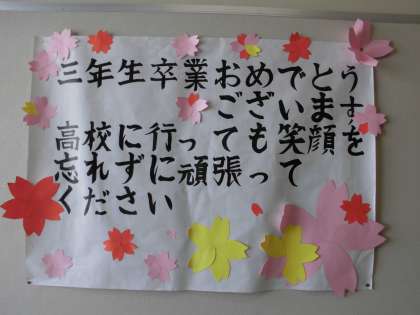 三年生卒業おめでとう
ございます
高校に行っても笑顔を
忘れずに頑張って
ください